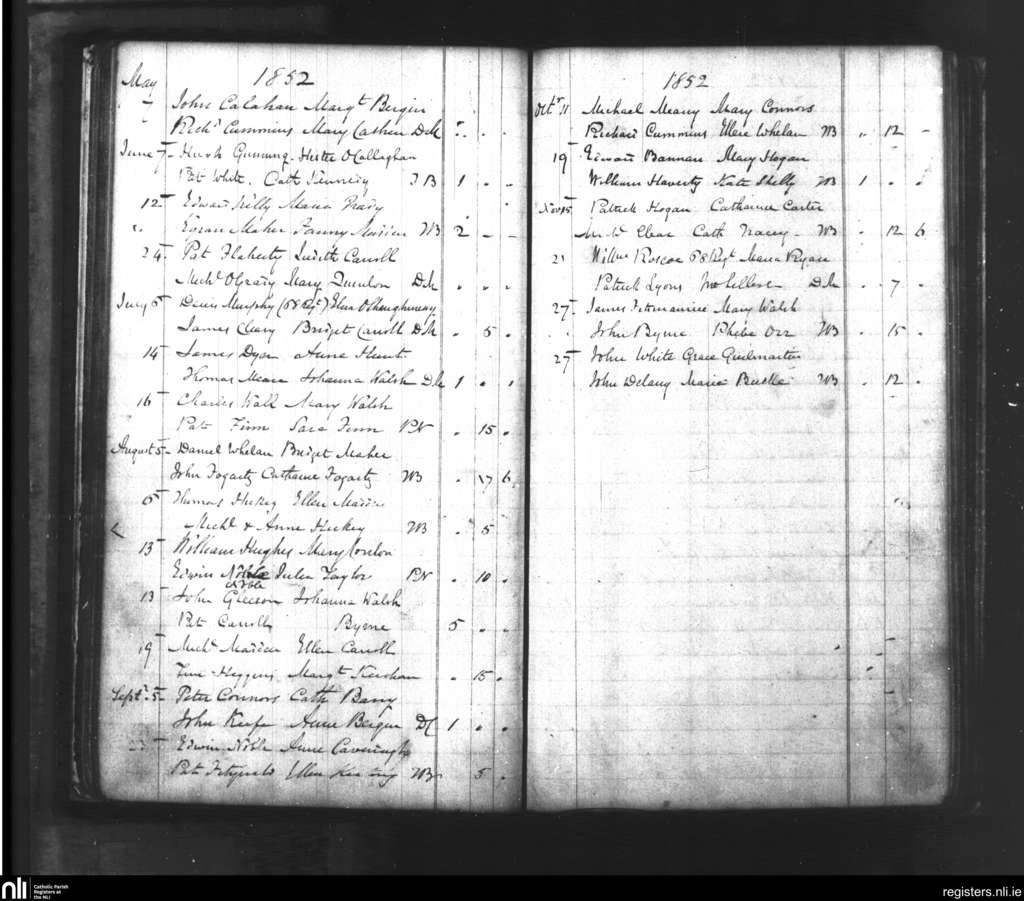 1852
May
John Calahan Margt Bergin
Richd Cummins Mary Cashen Dk
June 7 Hugh Gunning Hester O Callaghan
Pat White. Cath Kennedy B 1
12 Edward Kelly Maria Grady
Egean Maher Fanny WB 2
24 Pat Flaherty Judith Carroll
Michl O Grady Mary Quinlon Dk
July 5 Denis Murphy (68 Rgt) Eliza O Shaughnessy
James Cleary Bridget Carroll Dk 5
14 James Dyer Anne Hunt
Thomas Meara Johanna Walsh Dk 1
16 Charles Wall Mary Walsh
Pat Finn Sara Finn PN 15
August 5 Daniel Whelan Bridget Maher
John Fogarty Catharine Fogarty WB 17 6
6 Thomas Hickey Ellen
Michl & Anne Hickey WB 5
13 William Hughes Mary Conlon
Edwin Noble Julia Taylor PN 10
Noble
13 John Gleeson Johanna Walsh
Pat Carroll Byrne 5
19 Michl Ellen Carroll
Tim Higgins Margt 15
Septr 5 Peter Connors Cath Barry
John Keefe Anne Bergin 1
Edwin Noble Anne
Pat Fitzgerald Ellen Keating WB 5
1852
Octr 11 Michael Meary Mary Connors
Richard Cummins Ellen Whelan WB 12
19 Edward Bannan Mary Hogan
William Haverty Kate Shelly WB 1
Nov 15 Patrick Hogan Catharine Carter
Clear Cath Tracey WB 12 6
21 Willm Roscoe 68 Rgt Maria Ryan
Patrick Lyons Dk 7
27 James Fitzmaurice Mary Walsh
John Byrne Phibe Orr WB 15
27 John White Grace Guilmartin
John Delany Maria Burke WB 12
nli
Catholic Parish
Registers at
the NLI
registers.nli.ie